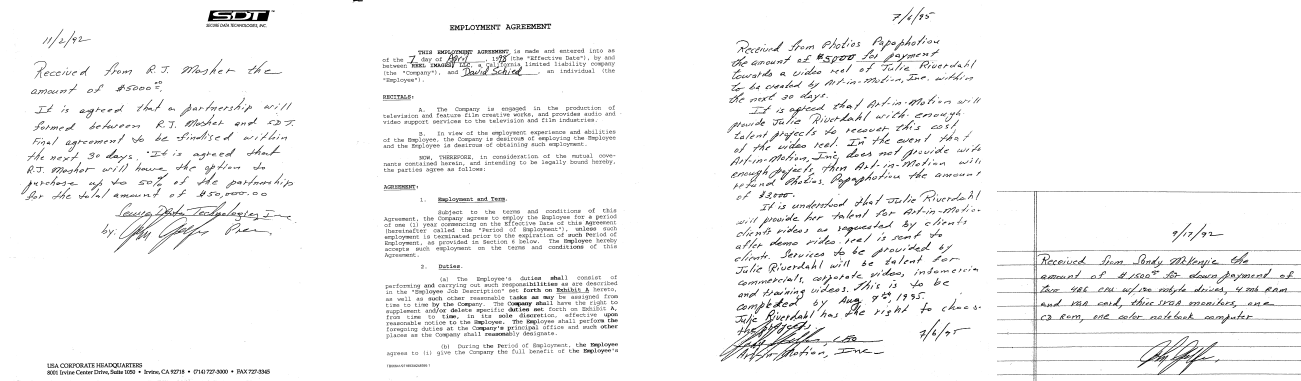 SDT
SECURE DATA TECHNOLOGIES, INC.
11/2/92
Received from R.J. Mosher the
amount of $5000.00.
It is agreed that a partnership will
formed between R.J. Mosher and SDT.
Final agreement to be finalised within
the next 30 days. It is agreed that
R.J. Mosher will have the option to
purchase up to 50% of the partnership
for the total amount of $50,000.00
Secure Data Technologies Inc.
by: Pres.
USA CORPORATE HEADQUARTERS
8001 Irvine Center Drive, Suite 1050 • Irvine, CA 92718 • (714) 727-3000 • FAX 727-3345
EMPLOYMENT AGREEMENT
THIS EMPLOYMENT AGREEMENT is made and entered into as
of the 7 day of April, 1998 (the "Effective Date"), by and
between REEL IMAGES LLC, a California limited liability company
(the "Company"), and David Schied, an individual (the
"Employee").
RECITALS:
A. The Company is engaged in the production of
television and feature film creative works, and provides audio and
video support services to the television and film industries.
B. In view of the employment experience and abilities
of the Employee, the Company is desirous of employing the Employee
and the Employee is desirous of obtaining such employment.
NOW, THEREFORE, in consideration of the mutual cove-
nants contained herein, and intending to be legally bound hereby,
the parties agree as follows:
AGREEMENT:
1. Employment and Term.
Subject to the terms and conditions of this
Agreement, the Company agrees to employ the Employee for a period
of one (1) year commencing on the Effective Date of this Agreement
(hereinafter called the "Period of Employment"), unless such
employment is terminated prior to the expiration of such Period of
Employment, as provided in Section 6 below. The Employee hereby
accepts such employment on the terms and conditions of this
Agreement.
2. Duties.
(a) The Employee's duties shall consist of
performing and carrying out such responsibilities as are described
in the "Employee Job Description" set forth on Exhibit A hereto,
as well as such other reasonable tasks as may be assigned from
time to time by the Company. The Company shall have the right to
supplement and/or delete specific duties set forth on Exhibit A,
from time to time, in its sole discretion, effective upon
reasonable notice to the Employee. The Employee shall perform the
foregoing duties at the Company's principal office and such other
places as the Company shall reasonably designate.
(b) During the Period of Employment, the Employee
agrees to (i) give the Company the full benefit of the Employee's
7/6/95
Received from Photios Papaphotiou
the amount of $5000 for payment
towards a video reel of Julie Riverdahl
to be created by Art-in-Motion, Inc. within
the next 30 days.
It is agreed that Art-in-Motion will
provide Julie Riverdahl with enough
talent projects to recover this cost
of the video reel. In the event that
Art-in-Motion, Inc. does not provide with
enough projects, then Art-in-Motion will
refund Photios Papaphotiou the amount
of $3,000.
It is understood that Julie Riverdahl
will provide her talent for Art-in-Motion
clients videos as requested by clients
after demo video reel is sent to
clients. Services to be provided by
Julie Riverdahl will be talent for
commercials, corporate videos, infomercia
and training videos. This is to be
completed by Aug 7th, 1995.
Julie Riverdahl has the right to choose
the projects.
CEO 7/6/95
Art-in-Motion, Inc
9/17/92
Received from Sandy McKenzie the
amount of $1500.00 for down payment of
two 486 CPU w/120 mbyte drives, 4 mb RAM
and VGA card, three SVGA monitors, one
CD Rom, one color notebook computer